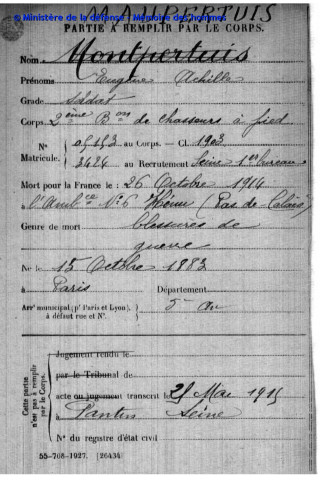 © Ministère de la défense - Mémoire des hommes
MAUPERTUIS
PARTIE À REMPLIR PAR LE CORPS.
Nom Montpertuis
Prénoms Eugène Achille
Grade Soldat
Corps 2ème Bon de chasseurs à pied
N° Matricule. { 05153 au Corps. — Cl. 1903
3424 au Recrutement Seine 1er bureau
Mort pour la France le : 26 Octobre 1914
à l'Ambce N° 6 Hénu (Pas de Calais)
Genre de mort blessures de
guerre
Né le 15 Octobre 1883
à Paris Département
Arrt municipal (pr Paris et Lyon), à défaut rue et N°. } 5e Arr
Cette partie n'est pas à remplir par le Corps.
Jugement rendu le
par le Tribunal de
acte ou jugement transcrit le 25 Mai 1915
à Pantin Seine
N° du registre d'état civil
55-708-1927. [26434]